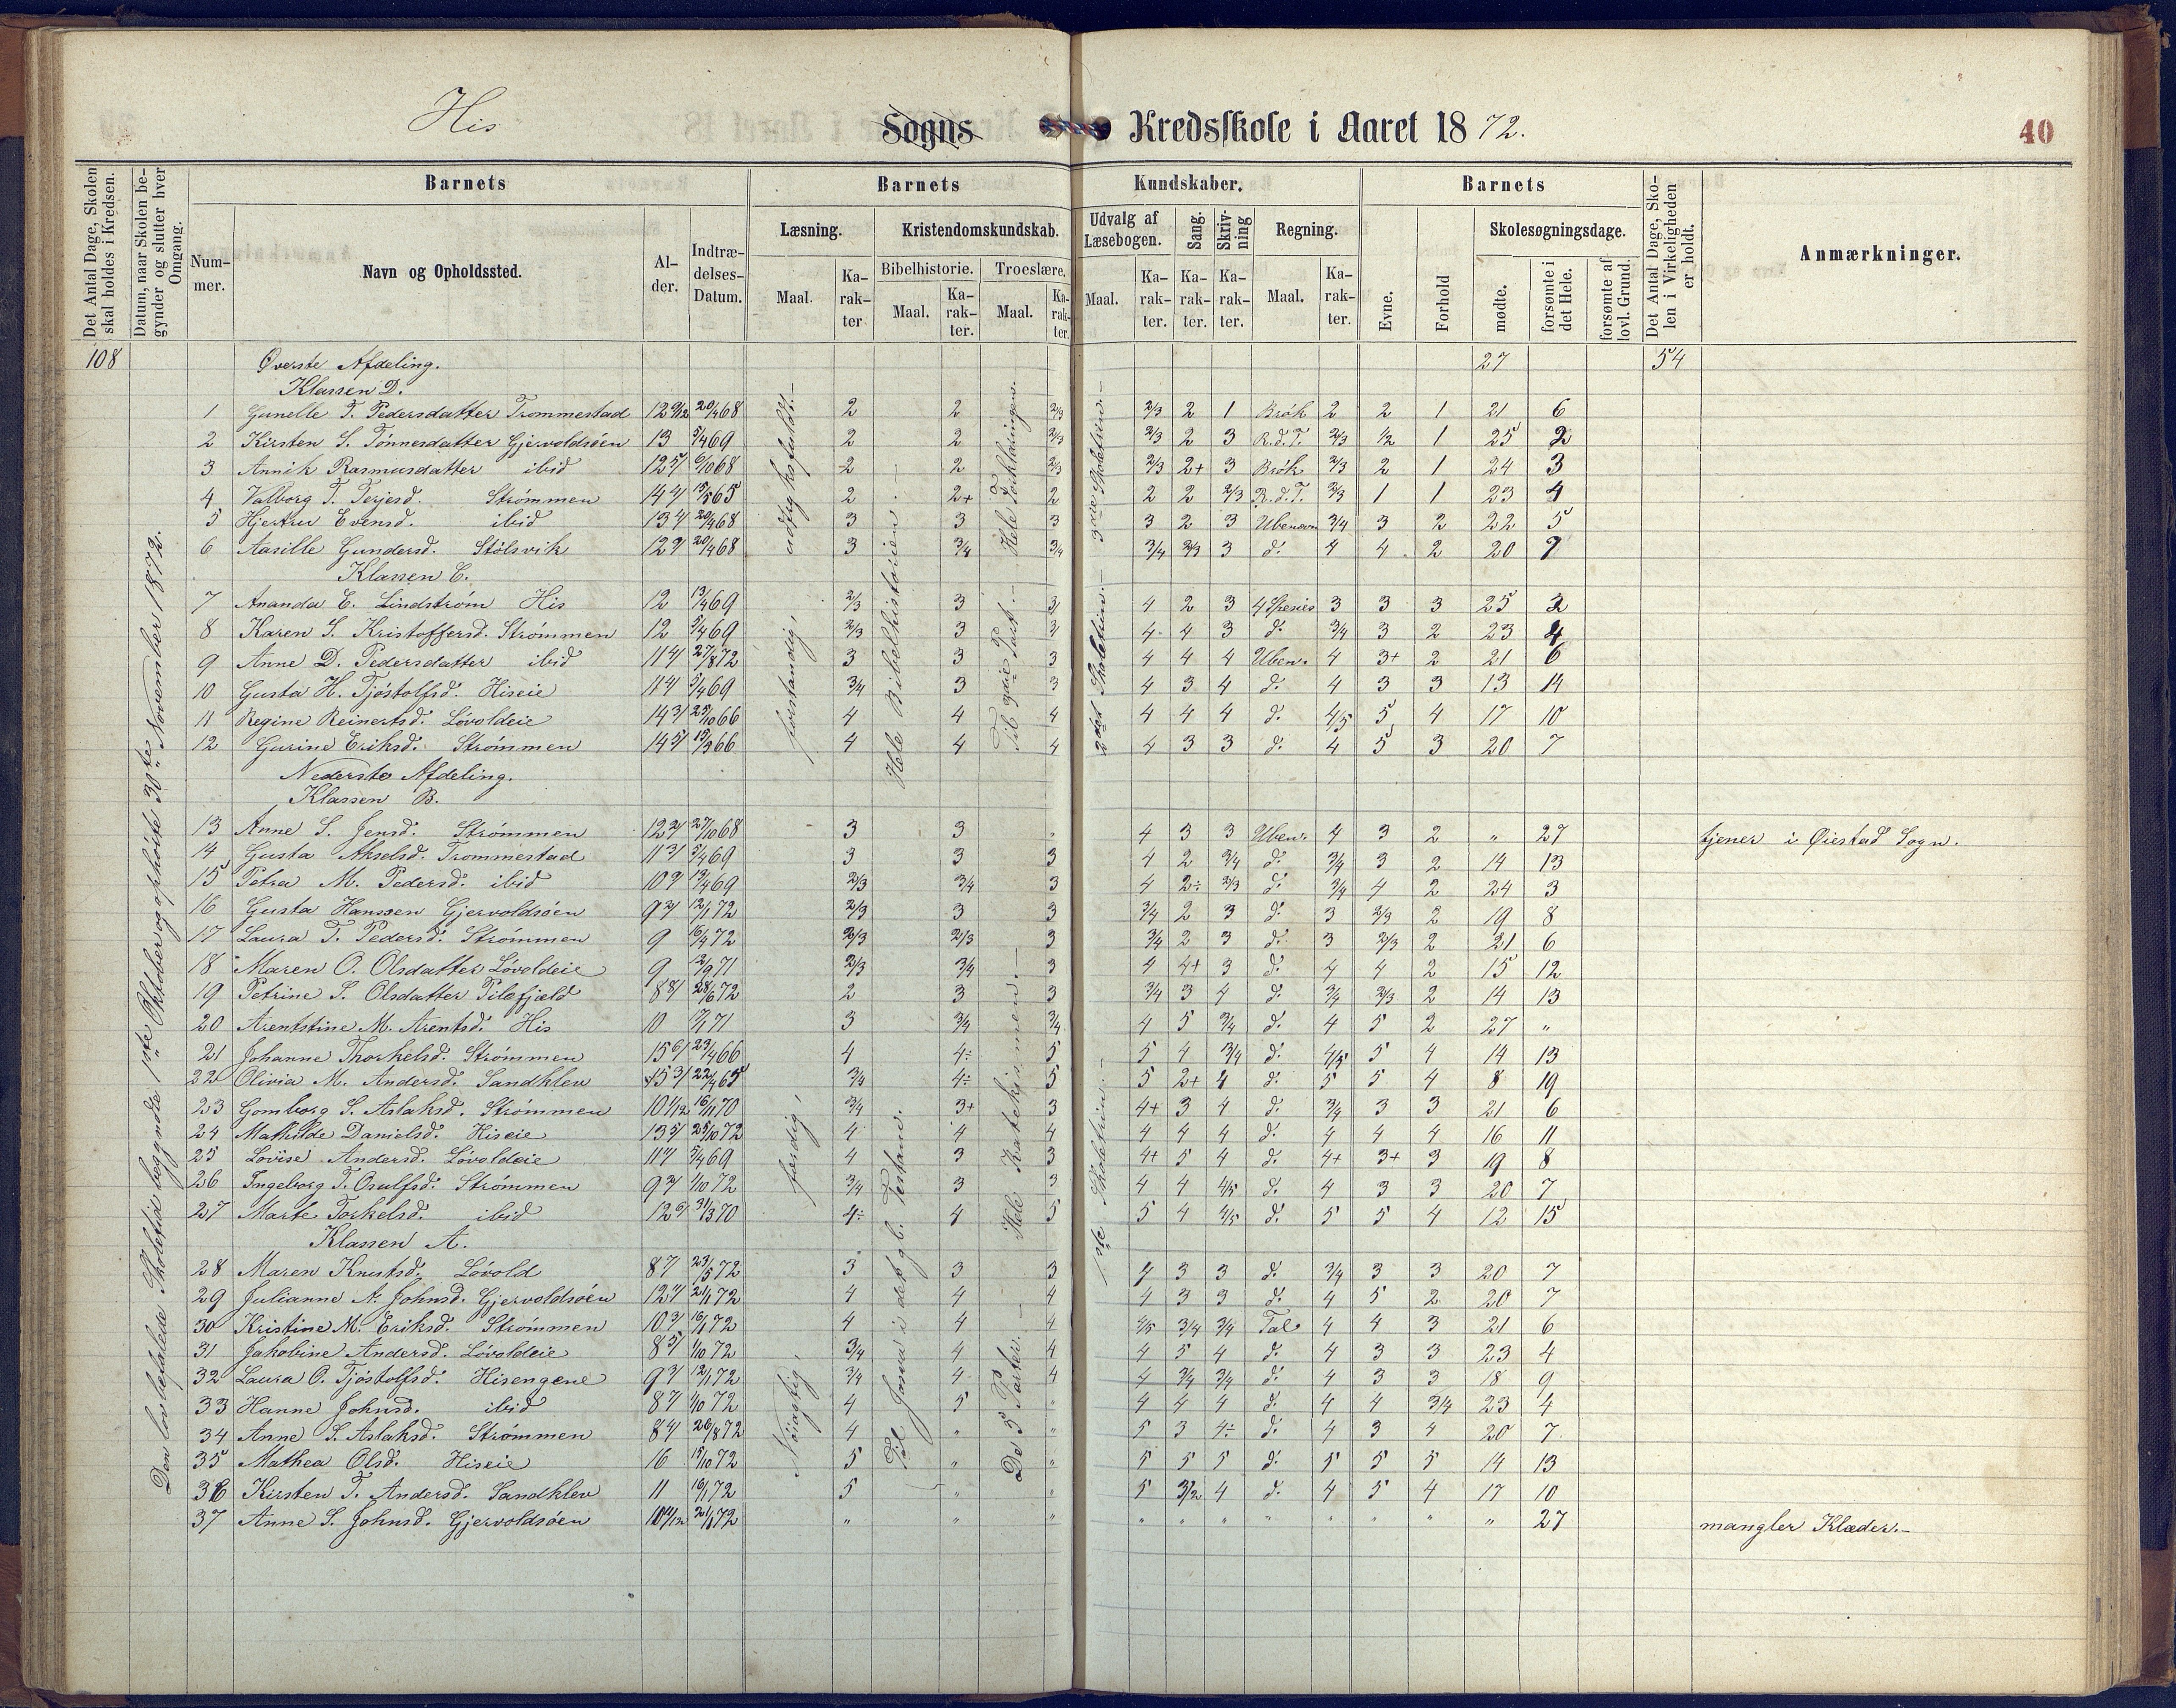 His Sogns Kredsskole i Aaret 1872. 40
Det Antal Dage, Skolen skal holdes i Kredsen.
Datum, naar Skolen begynder og slutter hver Omgang.
Barnets
Nummer.
Navn og Opholdssted.
Alder.
Indtrædelses-Datum.
Barnets Kundskaber.
Læsning.
Maal. Karakter
Kristendomskundskab.
Bibelhistorie. Maal. Karakter.
Troeslære. Maal. Karakter.
Udvalg af Læsebogen. Maal. Karakter.
Sang. Karakter.
Skrivning Karakter.
Regning. Maal. Karakter.
Barnets
Evne.
Forhold
Skolesøgningsdage.
mødte.
forsømte i det Hele.
forsømte af lovl. Grund.
Det Antal Dage, Skolen i Virkeligheden er holdt.
Anmærkninger.
Den lovbefalede Skoletid begyndte 1ste Oktober og ophørte 30te November 1872.
108 Øverste Afdeling. 27 54
Klassen D.
1 Gunelle T. Pedersdatter Trommestad 12 9/12 20/4 68 2 2 2/3 2/3 2 1 Brøk 2 2 1 21 6
2 Kirsten S. Tønnesdatter Gjervoldsøen 13 5/4 69 2 2 2/3 2/3 2 3 R.d.T. 2/3 1/2 1 25 2
3 Annik Rasmusdatter ibid 12 5/ 6/10 68 2 2 2/3 2/3 2+ 3 Brøk 2/3 2 1 24 3
4 Valborg T. Terjesd. Strømmen 14 4/ 15/5 65 2 2+ 2 2 2 2/3 R.d.T. 2/3 1 1 23 4
5 Hjertru Evensd. ibid 13 4/ 20/4 68 3 3 3 3 2 3 Ubenævn 3/4 3 2 22 5
6 Aasille Gundersd. Stølsvik 12 9/ 20/4 68 3 3/4 3/4 3/4 2/3 3 d: 4 4 2 20 7
Klassen C.
7 Ananda E. Lindstrøm His 12 13/4 69 2/3 3 3/ 4 2 3 4 Spesies 3 3 3 25 2
8 Karen S. Kristoffersd. Strømmen 12 5/4 69 2/3 3 3/ 4 4 3 d: 3/4 3 2 23 4
9 Anne D. Pedersdatter ibid 11 4/ 27/8 72 3 3 3 4 4 4 Uben. 4 3+ 2 21 6
10 Gusta H. Tjøstolfsd. Hiseie 11 4/ 5/4 69 3/4 3 3 4 3 4 d. 4 3 3 13 14
11 Regine Reinertsd. Løvoldeie 14 3/ 25/10 66 4 4 4 4 4 4 d. 4/5 5 4 17 10
12 Gurine Eriksd. Strømmen 14 5/ 15/9 66 4 4 4 4 3 3 d. 4 5 3 20 7
Nederste Afdeling.
Klassen B.
13 Anne S. Jensd. Strømmen 12 2/ 27/10 68 3 3 " 4 3 3 Uben. 4 3 2 " 27 tjener i Øiestad Sogn.
14 Gusta Akselsd. Trommestad 11 3/ 5/4 69 3 3 3 4 2 3/4 d. 3/4 3 2 14 13
15 Petra M. Pedersd. ibid 10 9/ 13/4 69 2/3 3/4 3 4 2÷ 2/3 d. 3/4 4 2 24 3
16 Gusta Hanssen Gjervoldsøen 9 2/ 12/1 72 2/3 3 3 3/4 2 3 d. 3 2/3 2 19 8
17 Laura T. Pedersd. Strømmen 9 6/4 72 2/3 2/3 3 3/4 2 3 d. 3 2/3 2 21 6
18 Maren O. Olsdatter Løvoldeie 9 2/9 71 2/3 3/4 3 4 4+ 3 d. 4 4 2 15 12
19 Petrine S. Olsdatter Pilefjeld 8 8/ 28/6 72 2 3 3 3/4 3 4 d. 3/4 2/3 2 14 13
20 Arentstine M. Arentsd. His 10 17/1 71 3 3/4 3/4 4 5 3/4 d. 4 5 2 27 "
21 Johanne Thorkelsd. Strømmen 15 6/ 23/4 66 4 4÷ 5 5 4 3/4 d. 4/5 5 4 14 13
22 Olivia M. Andersd. Sandklev 15 3/ 22/4 65 3/4 4÷ 5 5 2+ 4 d. 5 5 4 8 19
23 Gomborg S. Aslaksd. Strømmen 10 1/12 16/11 70 3/4 3+ 3 4+ 3 4 d. 3/4 3 3 21 6
24 Mathilde Danielsd. Hiseie 13 5/ 25/10 72 4 4 4 4 4 4 d. 4 4 4 16 11
25 Lovise Andersd. Løvoldeie 11 7 5/4 69 4 3 3 4+ 5 4 d. 4+ 3+ 3 19 8
26 Ingeborg T. Osulfsd. Strømmen 9 3/ 1/10 72 3/4 3 3 4 4 4/5 d. 4 3 3 20 7
27 Marte Torkelsd. ibid 12 6/ 31/3 70 4÷ 4 5 5 4 4/5 d. 5 5 4 12 15
Klassen A.
28 Maren Knutsd. Løvold 8 7 23/5 72 3 3 3 4 3 3 d. 3/4 3 3 20 7
29 Julianne A. Johnsd. Gjervoldsøen 12 4/ 2/1 72 4 4 4 4 3 3 d. 4 5 2 20 7
30 Kristine M. Eriksd. Strømmen 10 3/ 16/1 72 4 4 4 4/5 3/4 3/4 Tal 4 4 3 21 6
31 Jakobine Andersd. Løvoldeie 8 5/ 1/10 72 3/4 4 4 4 5 4 d. 4 3 3 23 4
32 Laura O. Tjøstolfsd. Hisengene 9 3/ 12/1 72 3/4 4 4 4 3/4 3/4 d. 4 3 3 18 9
33 Hanne Johnsd. ibid 8 7 1/10 72 4 5 " 4 4 4 d. 4 4 3/4 23 4
34 Anne S. Aslaksd. Strømmen 8 4/ 26/8 72 4 " " 5 3 4÷ d. 4 3 4 20 7
35 Mathea Olsd. Hiseie 16 15/10 72 5 " " 5 5 5 d. 5 5 5 14 13
36 Kirsten T. Andersd. Sandklev 11 16/1 72 5 " " 5 3/2 4 d. 4 5 4 17 10
37 Anne S. Johnsd. Gjervoldsøen 10 11/12 2/1 72 " " " " " " " " " " " 27 mangler Klæder.-
forstandig, udtryksfuldt.-
færdig,
Nøiagtig,
Hele Bibelhistorien.-
Til Josva i det gl. Testam.
Til 3die Part.-
Hele Forklaringen.
De 5 Parter.-
Hele Katekismen.-
2det Skoletrin.- 3die Skoletrin.-
1ste Skoletrin.-